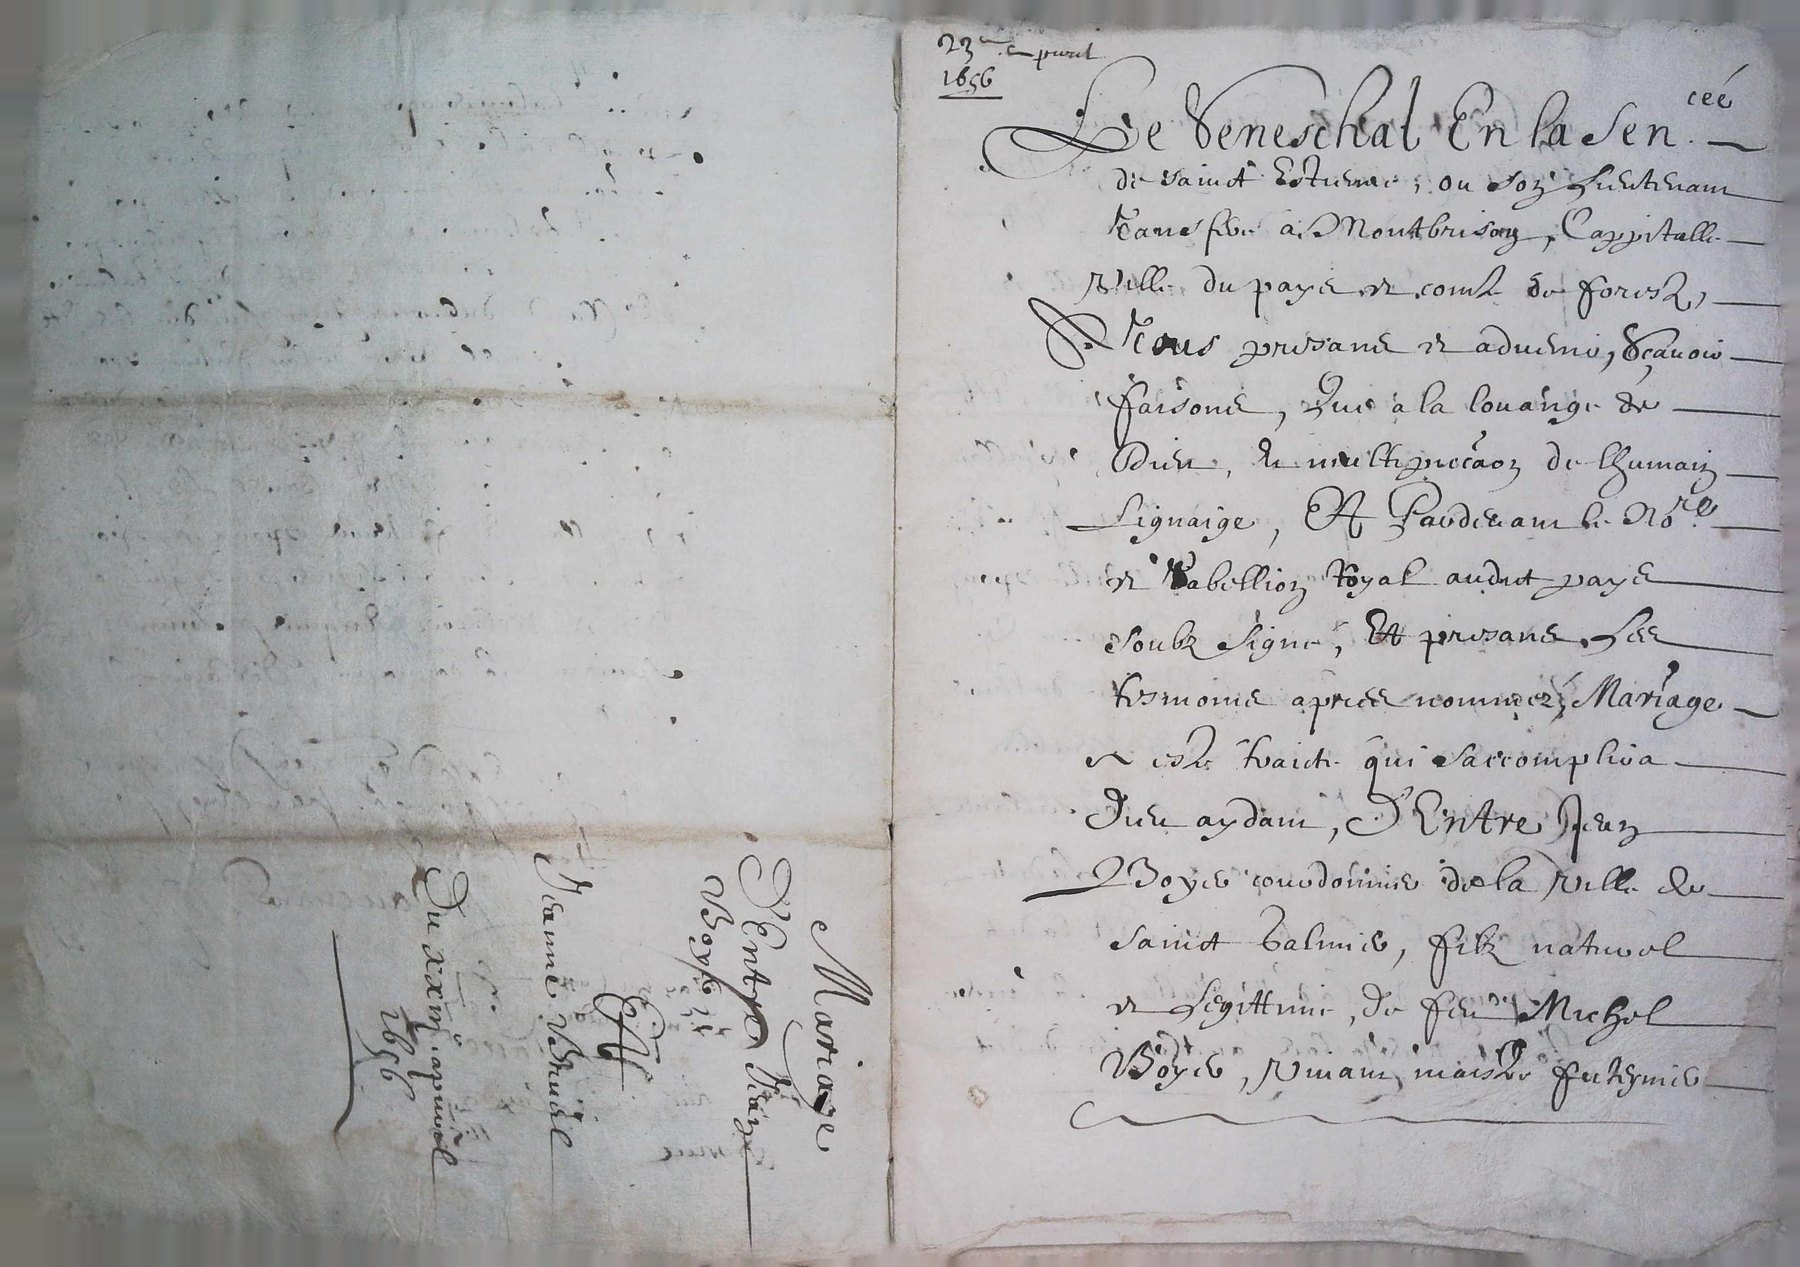 Mariage
D'Entre Jean
Boyer
Et
Jeanne
Du xxiij apvril
1656
23e apvril
1656
Le Seneschal En la Sen.cée
de sainct Estienne, ou son Lieutenant
transferé à Montbrison, Cappitalle
Ville du pays et comté de forestz,
A Tous presans et advenir, Sçavoir
faisons, Que a la louange de
Dieu, et multipica͠on de lhumain
Lignaige, Et Pardevant le No.re
et Tabellion Royal audict pays
soubz signé, Et presans Les
tesmoins apres nommez, Mariage
a esté traicté qui saccomplira
Dieu aydant, D'Entre Jean
Boyer courdonnier de la Ville de
sainct Galmier, filz naturel
et Legittime, de feu Michel
Boyer, vivant maistre